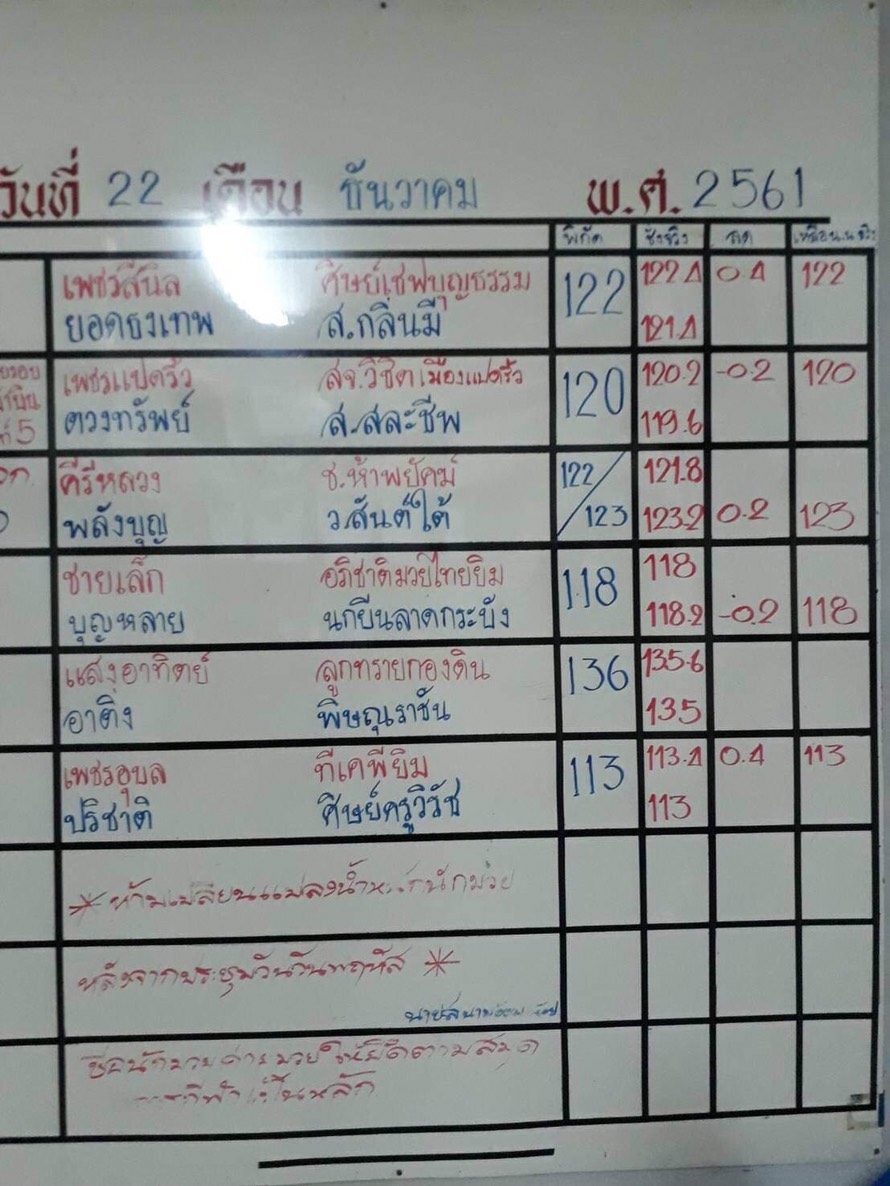 วันที่ 22 เดือน ธันวาคม พ.ศ. 2561
พิกัด ชั่งจริง ลด
เพชรสีนิล ศิษย์เชฟบุญธรรม 122 122.4 0.4 122
ยอดธงเทพ ส.กลิ่นมี 121.4
เพชรแปดริ้ว สจ.วิชิตเมืองแปดริ้ว 120 120.2 -0.2 120
ดวงทรัพย์ ส.สละชีพ 119.6
5
คีรีหลวง ช.ห้าพยัคฆ์ 122/123 121.8
พลังบุญ ว.สันต์ใต้ 123.2 0.2 123
ชายเล็ก อภิชาติมวยไทยยิม 118 118
บุญหลาย นกยีนลาดกระบัง 118.2 -0.2 118
แสงอาทิตย์ ลูกทรายกองดิน 136 135.6
อาติง พิษณุราชัน 135
เพชรอุบล ทีเคพียิม 113 113.4 0.4 113
ปริชาติ ศิษย์ครูวิรัช 113
* ห้ามเปลี่ยนแปลงน้ำหนักนักมวย
หลังจากประชุมวันวันพฤหัส *
ชื่อนักมวยค่ายมวยให้ยึดตามสมุด
เป็นหลัก